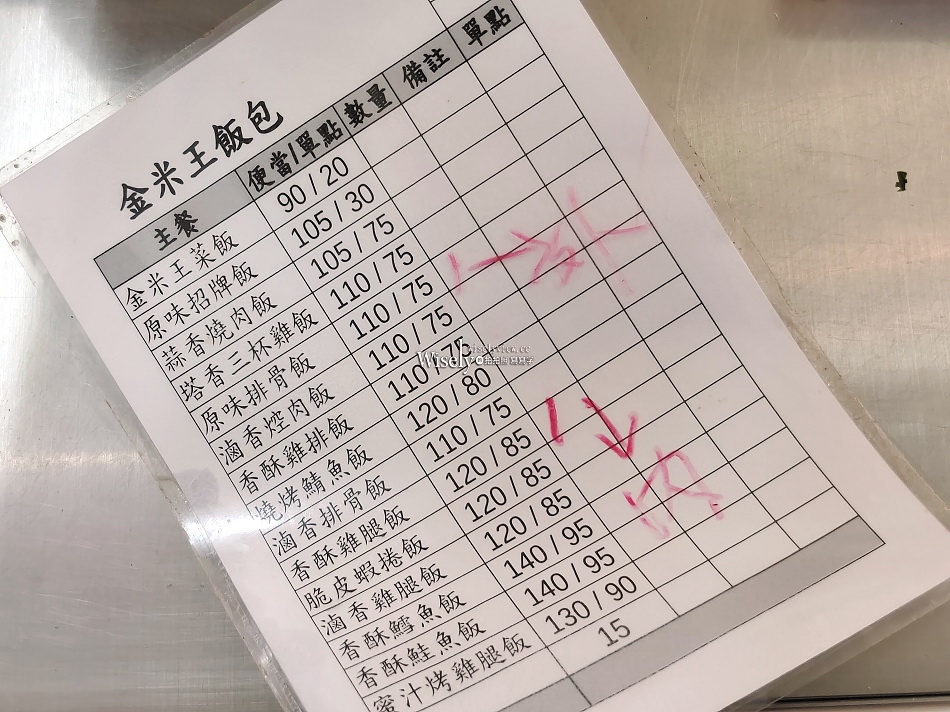 金米王飯包
主餐 便當/單點 數量 備註 單點
金米王菜飯 90 / 20
原味招牌飯 105 / 30
蒜香燒肉飯 105 / 75
塔香三杯雞飯 110 / 75
原味排骨飯 110 / 75
滷香焢肉飯 110 / 75
香酥雞排飯 110 / 75
燒烤鯖魚飯 120 / 80
滷香排骨飯 110 / 75
香酥雞腿飯 120 / 85
脆皮蝦捲飯 120 / 85
滷香雞腿飯 120 / 85
香酥鱈魚飯 140 / 95
香酥鮭魚飯 140 / 95
蜜汁烤雞腿飯 130 / 90
15
1→外
1↓
內
Wisely